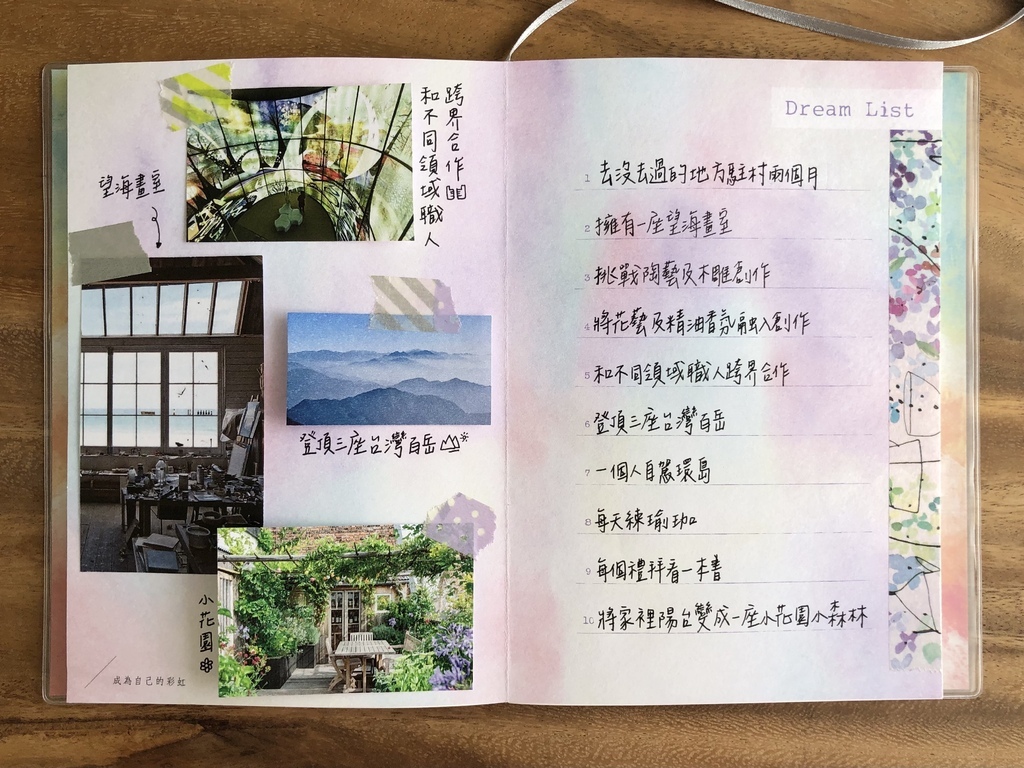 跨界合作
和不同領域職人
望海畫室
登頂三座台灣百岳
小花園
成為自己的彩虹
Dream List
1 去沒去過的地方駐村兩個月
2 擁有一座望海畫室
3 挑戰陶藝及木雕創作
4 將花藝及精油香氛融入創作
5 和不同領域職人跨界合作
6 登頂三座台灣百岳
7 一個人自駕環島
8 每天練瑜珈
9 每個禮拜看一本書
10 將家裡陽台變成一座小花園小森林